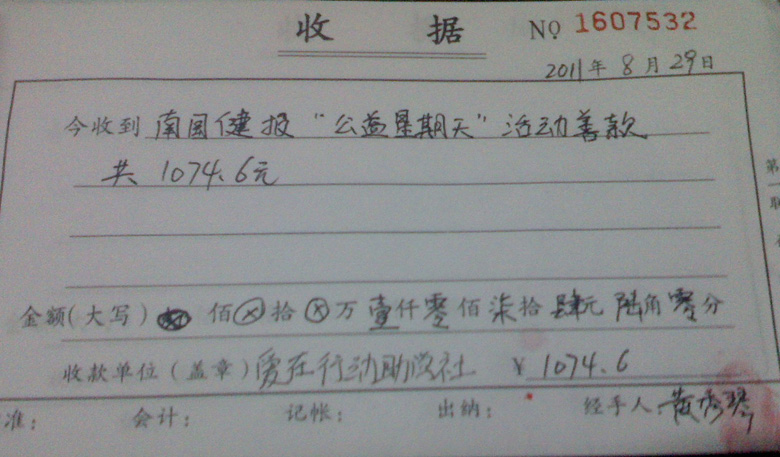 收 据 NO 1607532
2011年 8月 29日
今收到 南国健报 “公益星期天” 活动善款
共 1074.6元
金额(大写) 佰 拾 万 壹仟零佰柒拾肆元陆角零分
收款单位(盖章) 爱在行动助学社 ¥ 1074.6
准: 会计: 记帐: 出纳: 经手人: 黄秀琴
第
联